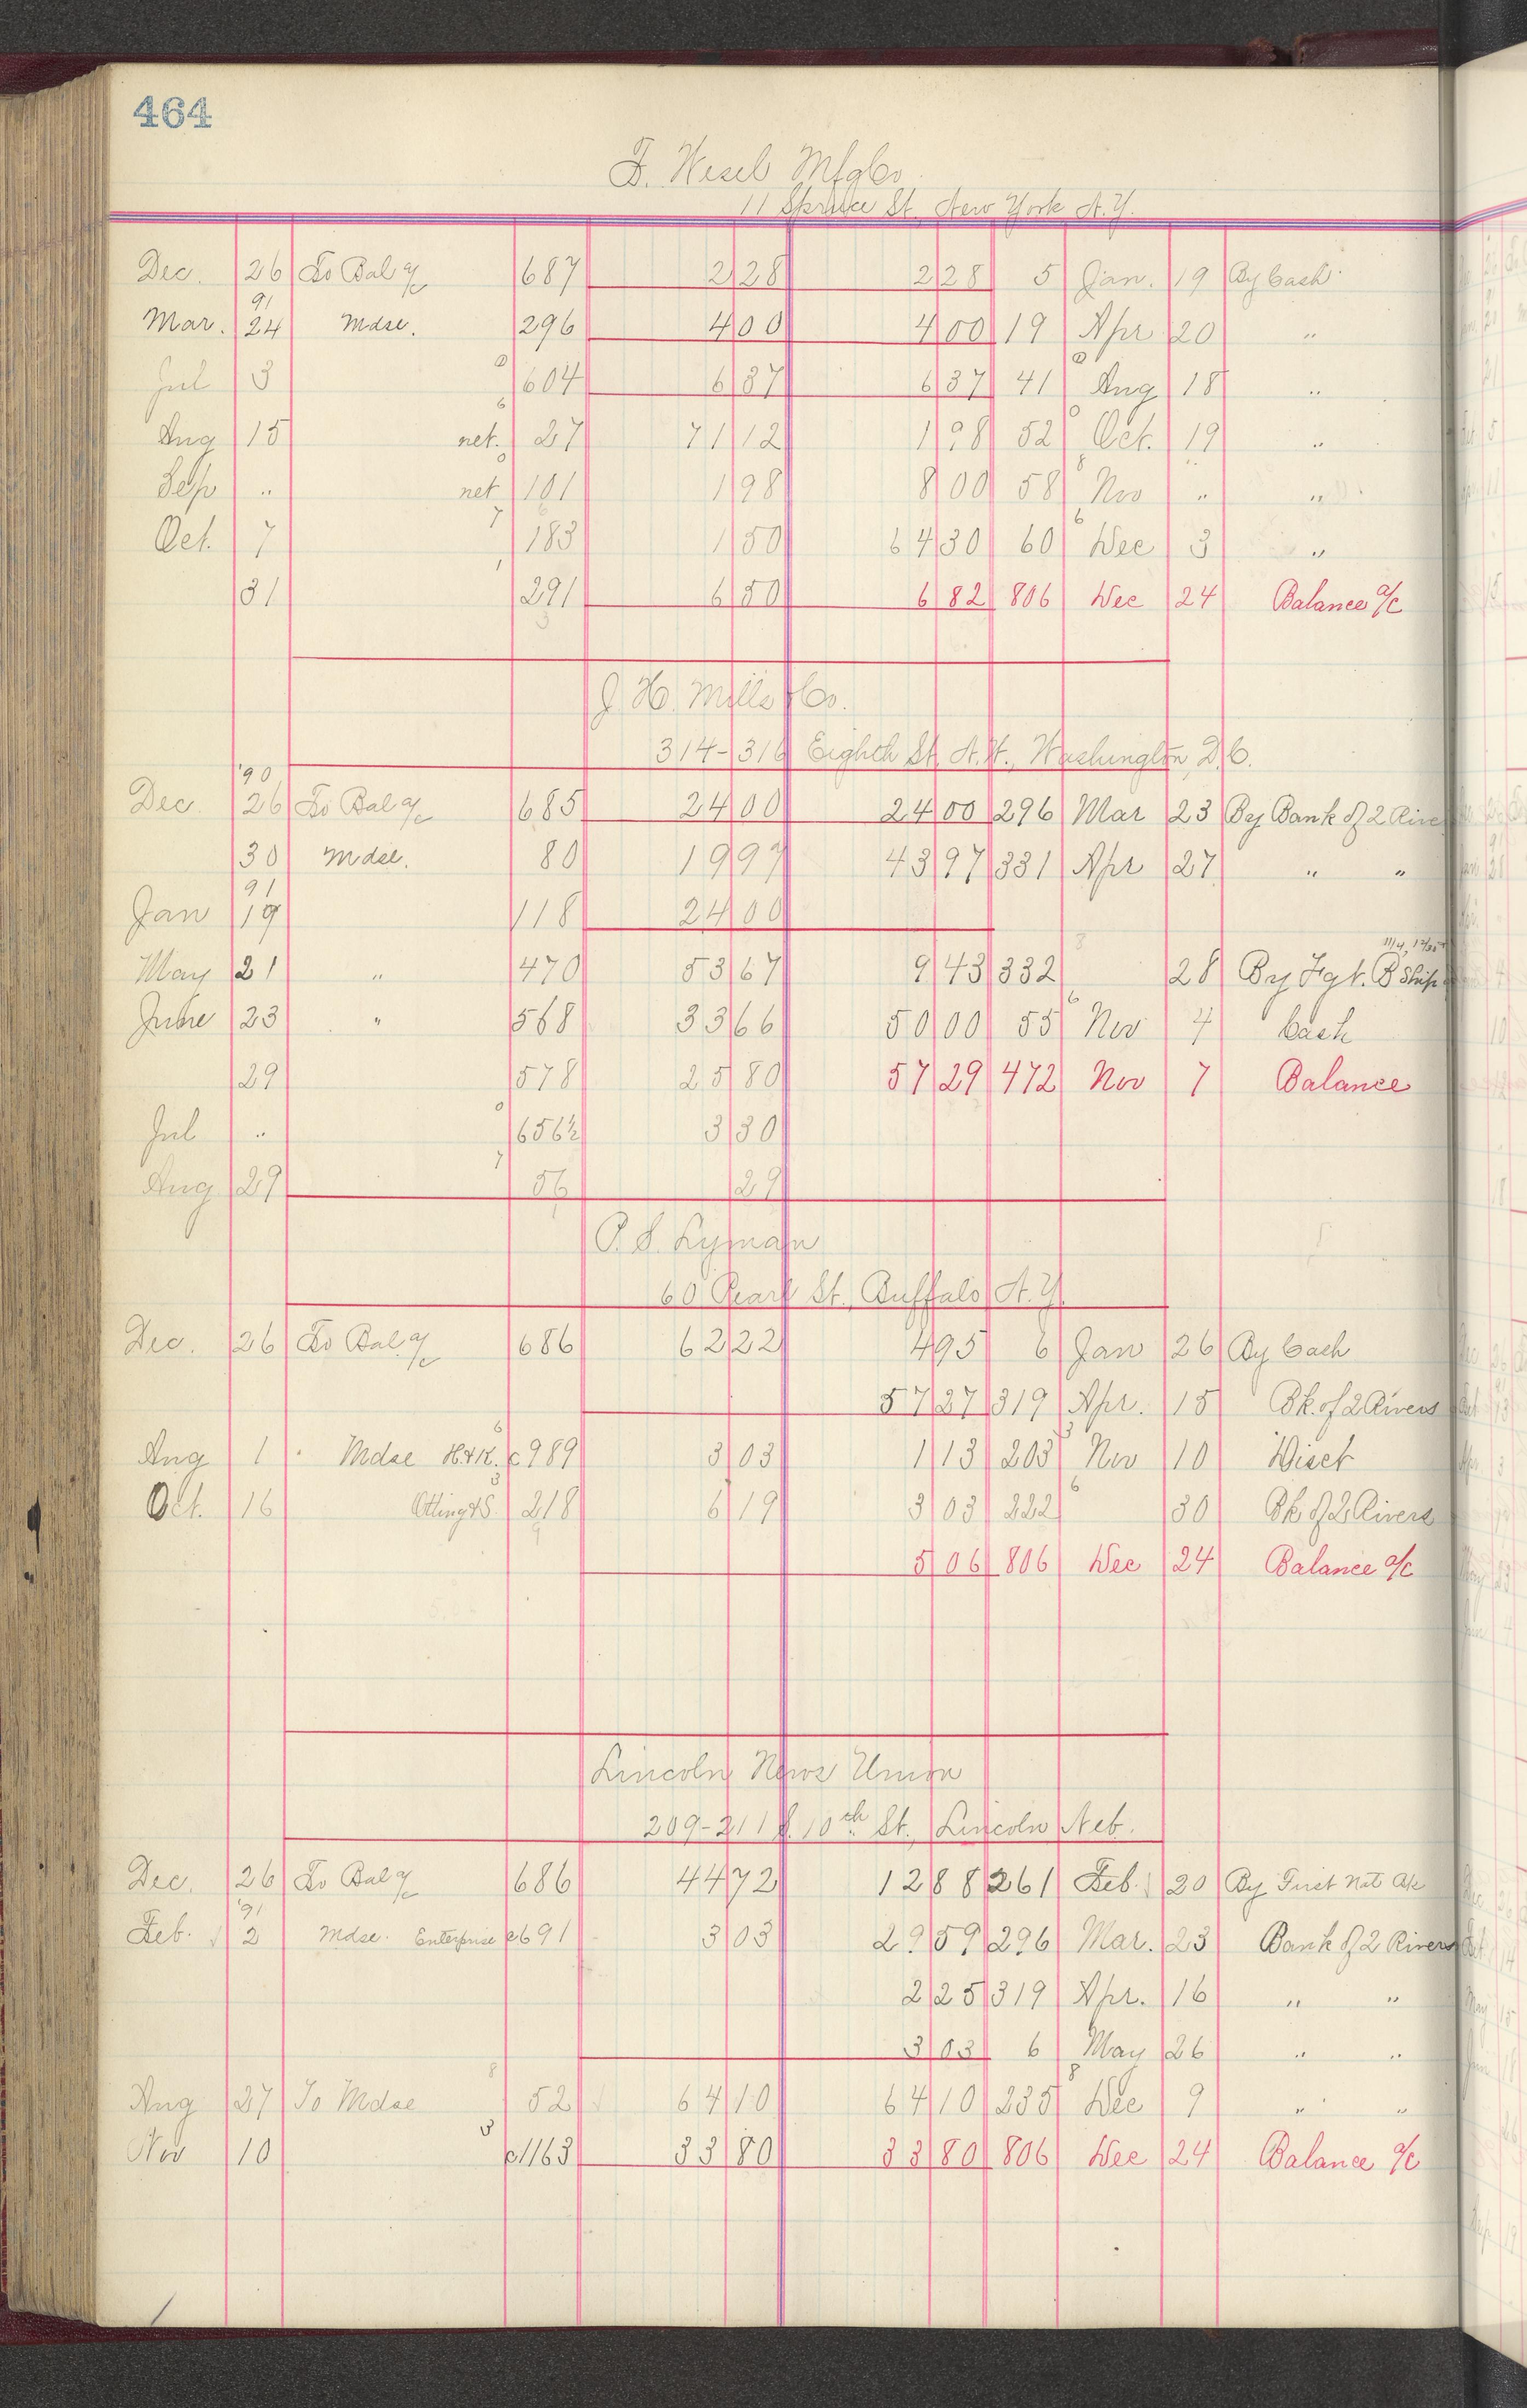 464
F. Wesel Mfg Co.
11 Spruce St. New York N.Y.
Dec. 26 To Bal a/c 687 2 28 2 28 5 Jan. 19 By Cash
91
Mar. 24 Mdse. 296 4 00 4 00 19 Apr 20 "
Jul 3 604 6 37 6 37 41 Aug 18 "
Aug 15 net. 27 71 12 1 98 52 Oct. 19 "
Sep " net 101 1 98 8 00 58 Nov " "
Oct. 7 183 1 50 64 30 60 Dec 3 "
31 291 6 50 6 82 806 Dec 24 Balance a/c
J. H. Mills & Co.
314-316 Eighth St. N.W., Washington, D.C.
'90
Dec. 26 To Bal a/c 685 24 00 24 00 296 Mar 23 By Bank of 2 Rive
30 Mdse. 80 19 97 43 97 331 Apr 27 " "
91
Jan 19 118 24 00
May 21 " 470 53 67 9 43 332 28 By Fgt. B Ship.
June 23 " 568 33 66 50 00 55 Nov 4 Cash
29 578 25 80 57 29 472 Nov 7 Balance
Jul " 656½ 3 30
Aug 29 56 29
P. S. Lyman
60 Pearl St., Buffalo N.Y.
Dec. 26 To Bal. a/c 686 62 22 4 95 6 Jan 26 By Cash
57 27 319 Apr. 15 Bk. of 2 Rivers
Aug 1 Mdse H.&K. c989 3 03 1 13 203 Nov 10 Disct
Oct. 16 Otting&S. 218 6 19 3 03 222 30 Bk of 2 Rivers
5 06 806 Dec 24 Balance a/c
Lincoln News Union
209-211 S. 10th St., Lincoln Neb.
Dec. 26 To Bal a/c 686 44 72 12 88 261 Feb. 20 By First Nat Bk
'91
Feb. 2 Mdse. Enterprise c691 3 03 29 59 296 Mar. 23 Bank of 2 Rivers
2 25 319 Apr. 16 " "
3 03 6 May 26 " "
Aug 27 To Mdse 52 64 10 64 10 235 Dec 9 " "
Nov 10 c1163 33 80 33 80 806 Dec 24 Balance a/c